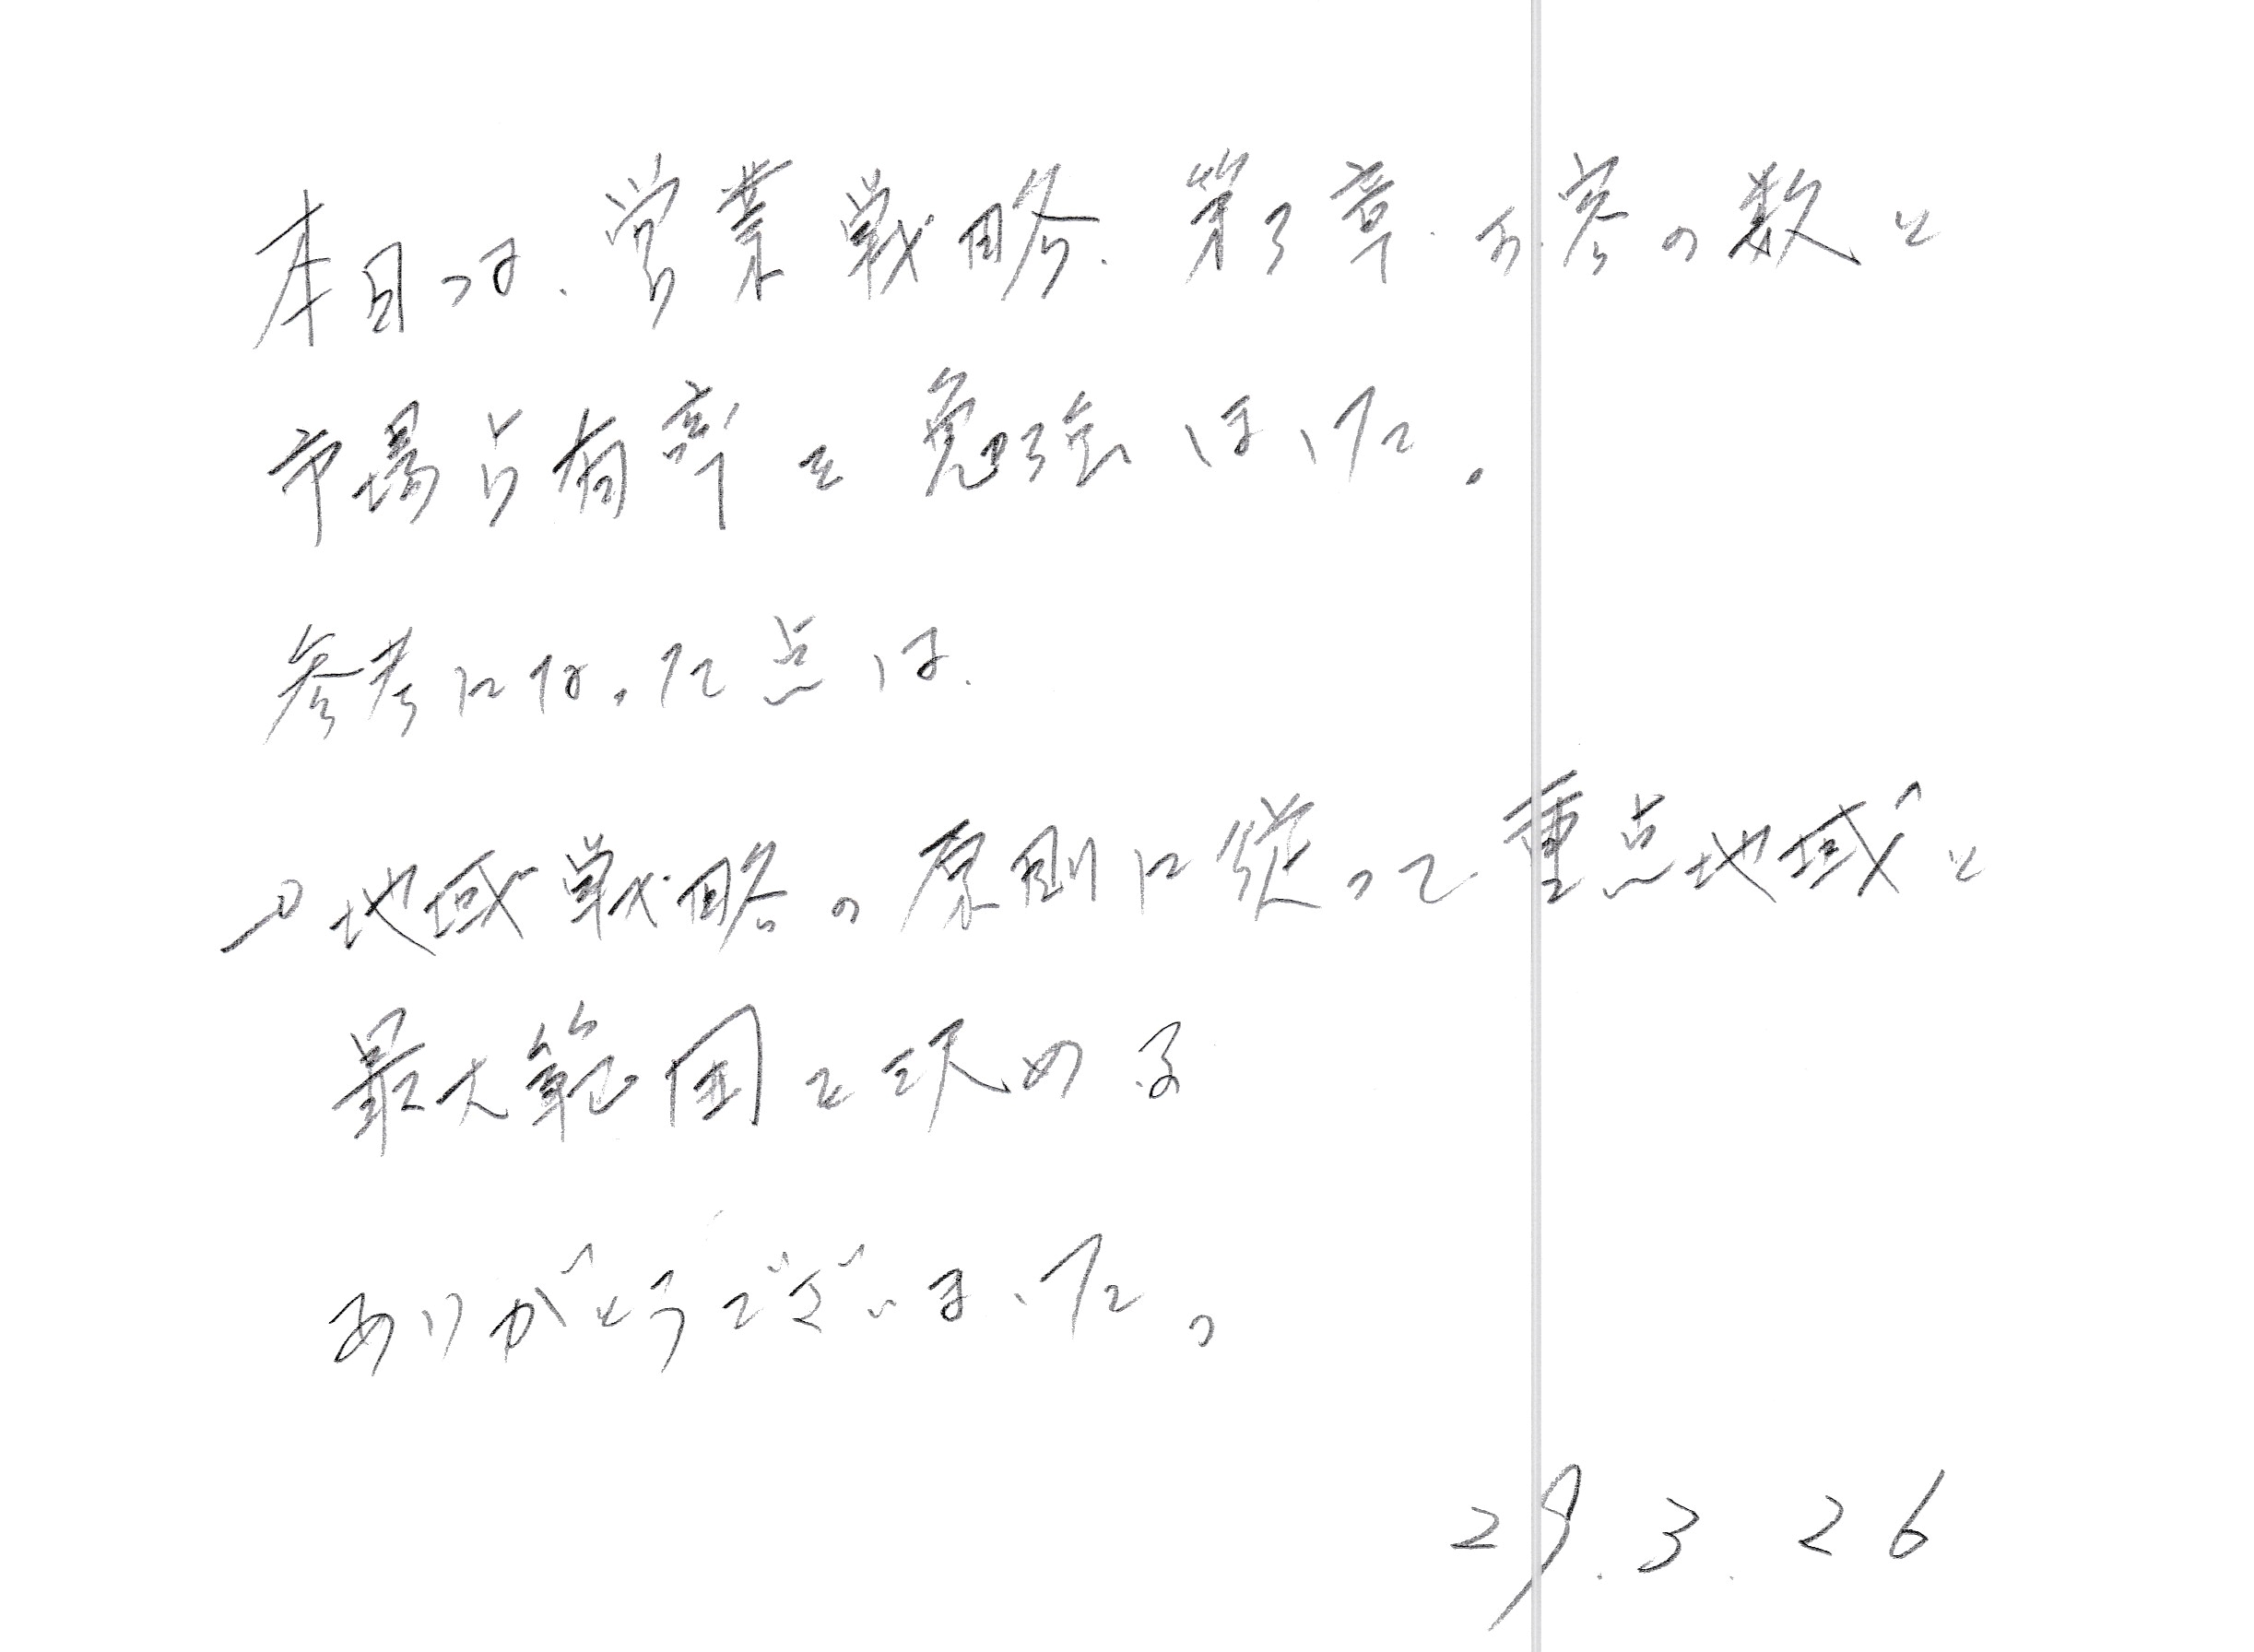 本日は、営業戦略、第3章、お客の数と
市場占有率を勉強しました。
参考になった点は、
→地域戦略の原則に従って重点地域と
最大範囲を決める
ありがとうございました。
29.3.26